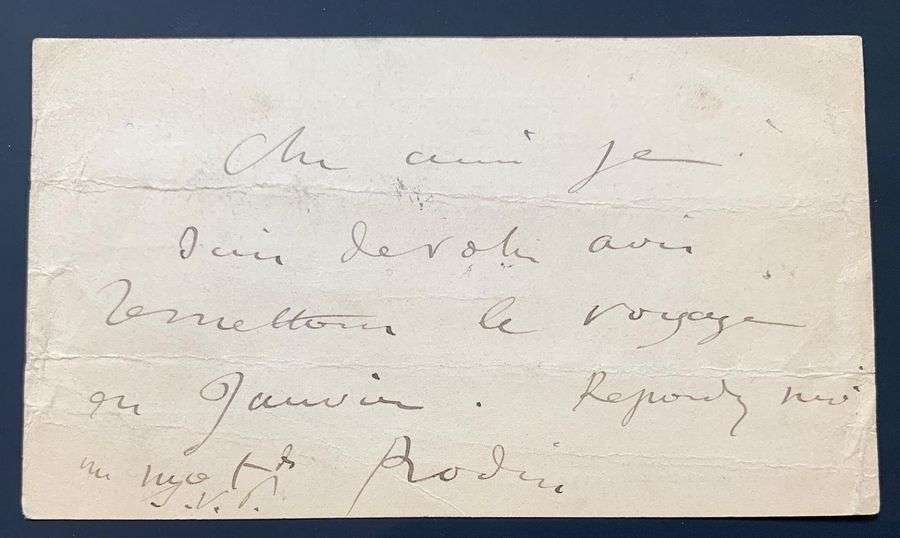 Cher ami je
suis de votre avis
Remettons le voyage
en Janvier. Repondez moi
un mot
S.V.P.
Rodin